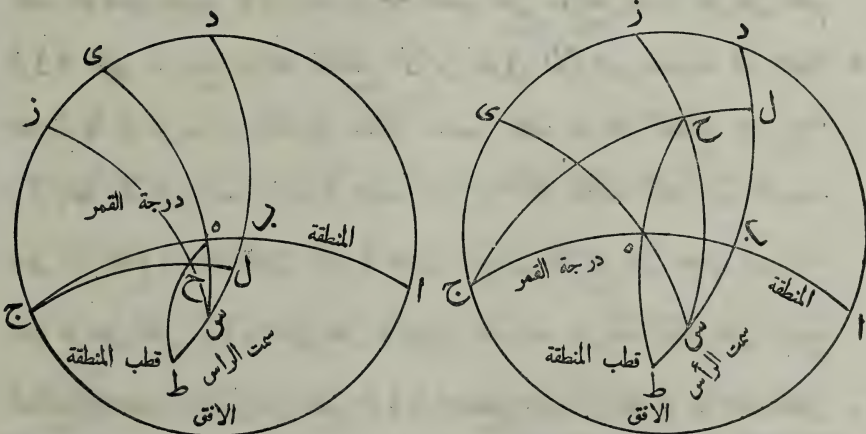 د
ز
ل
ح
ى
ب
ه
ج
درجة القمر
المنطقة
ا
س
سمت الرأس
قطب المنطقة
ط
الافق
د
ى
ز
درجة القمر
ه
ب
المنطقة
ح
ل
ا
ج
س
سمت الراس
قطب المنطقة
ط
الافق